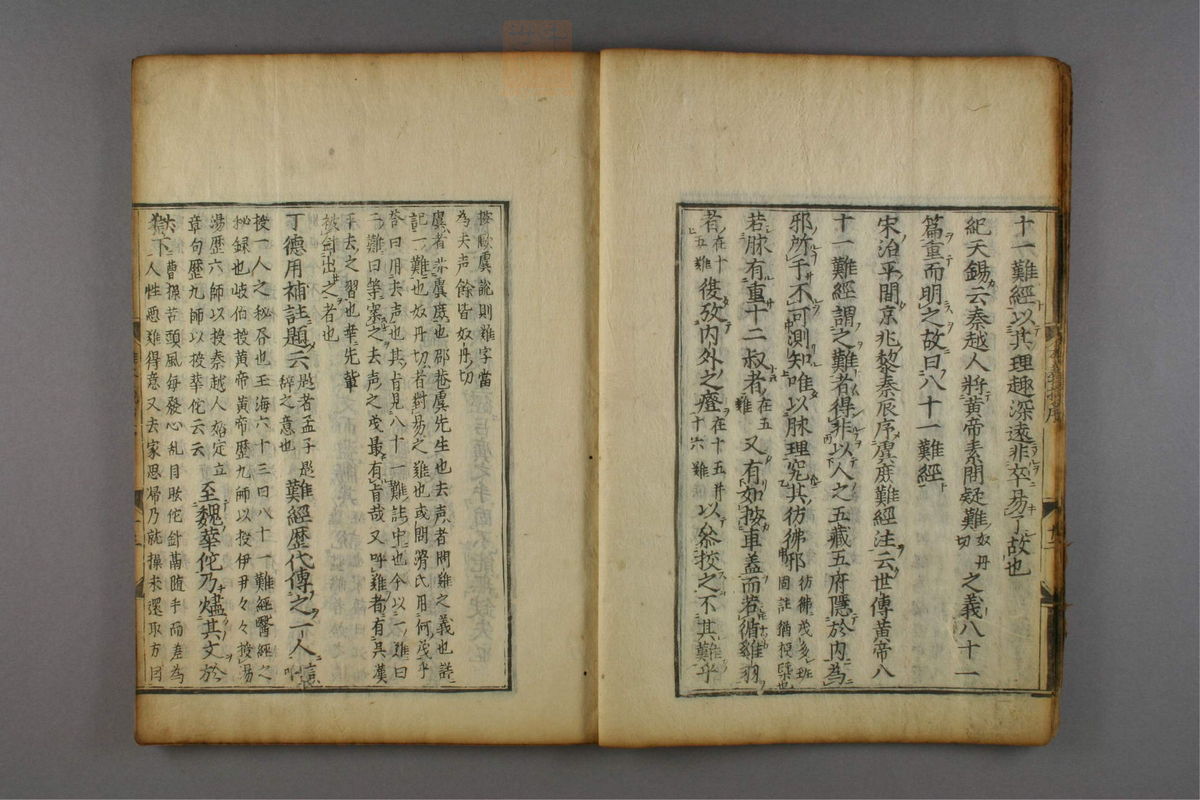 十一難經以其理趣深遠非卒易了故也
紀天錫云秦越人將黃帝素問疑難奴丹切之義八十一
篇重而明之故曰八十一難經
宋治平間京兆黎泰辰序虞庶難經注云世傳黃帝八
十一難經謂之難者得非以人之五藏五府隱於內為
邪所干不可測知唯以脉理究其彷彿邪
若脉有重十二叔者又有如按車蓋而若循雞羽
者在十五難復攷内外之證在十五并十六難以叅挍之不其難乎
按歐虞說則難字當
為去声餘皆奴丹切
虞者亦虞庶也邵菴虞先生也去声者問難之義也話
記一難也奴丹切者對易之難也或問滑氏用何茂乎
答曰用去声也其肯見八十一難詰中也今以一難曰
二難曰等案之去声之茂最有旨哉又呼難者有具漢
乎去之習也華先輩
丁德用補註題云難經歷代傳之一人
是者孟子是辞之意也
授一人之秘咎也玉海六十三曰八十一難經醫經之
秘録也岐伯授黄帝黄帝歷九師以授伊尹々々授湯
湯歷六師以授秦越人始定立
章句歷九師以授華佗云云至魏華佗乃燼其文於
獄下
六曹操苦頭風每發心乱目眩佗針鬲随手而差為
人性悪難得意又去家思帰乃就操求還取方因